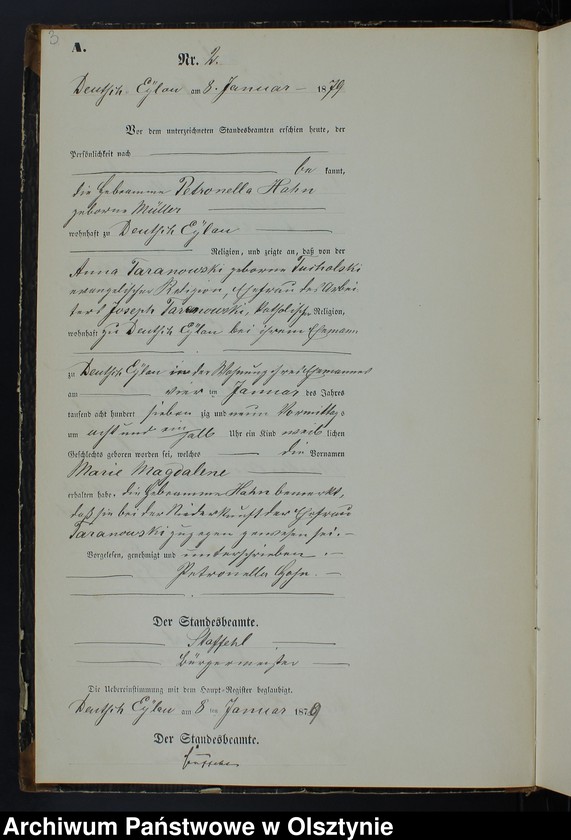 3
A.
Nr. 2.
Deutsch Eylau am 8. Januar 1879
Vor dem unterzeichneten Standesbeamten erschien heute, der
Persönlichkeit nach
be kannt,
die Hebeamme Petronella Hahn
geborne Müller
wohnhaft zu Deutsch Eylau
Religion, und zeigte an, daß von der
Anna Taranowski geborne Tucholski
evangelischer Religion, Ehefrau des Arbei-
ters Joseph Taranowski, katholischer Religion,
wohnhaft zu Deutsch Eylau bei ihrem Ehemann
zu Deutsch Eylau in der Wohnung ihres Ehemannes
am vier ten Januar des Jahres
tausend acht hundert sieben zig und neun Vormittags
um acht und ein halb Uhr ein Kind weib lichen
Geschlechts geboren worden sei, welches die Vornamen
Marie Magdalene
erhalten habe. die Hebeamme Hahn bemerkt,
daß sie bei der Niederkunft der Ehefrau
Taranowski zugegen gewesen sei.
Vorgelesen, genehmigt und unterschrieben.
Petronella Hahn.
Der Standesbeamte.
Bürgermeister
Die Uebereinstimmung mit dem Haupt-Register beglaubigt.
Deutsch Eylau am 8 ten Januar 1879
Der Standesbeamte.
Archiwum Państwowe w Olsztynie